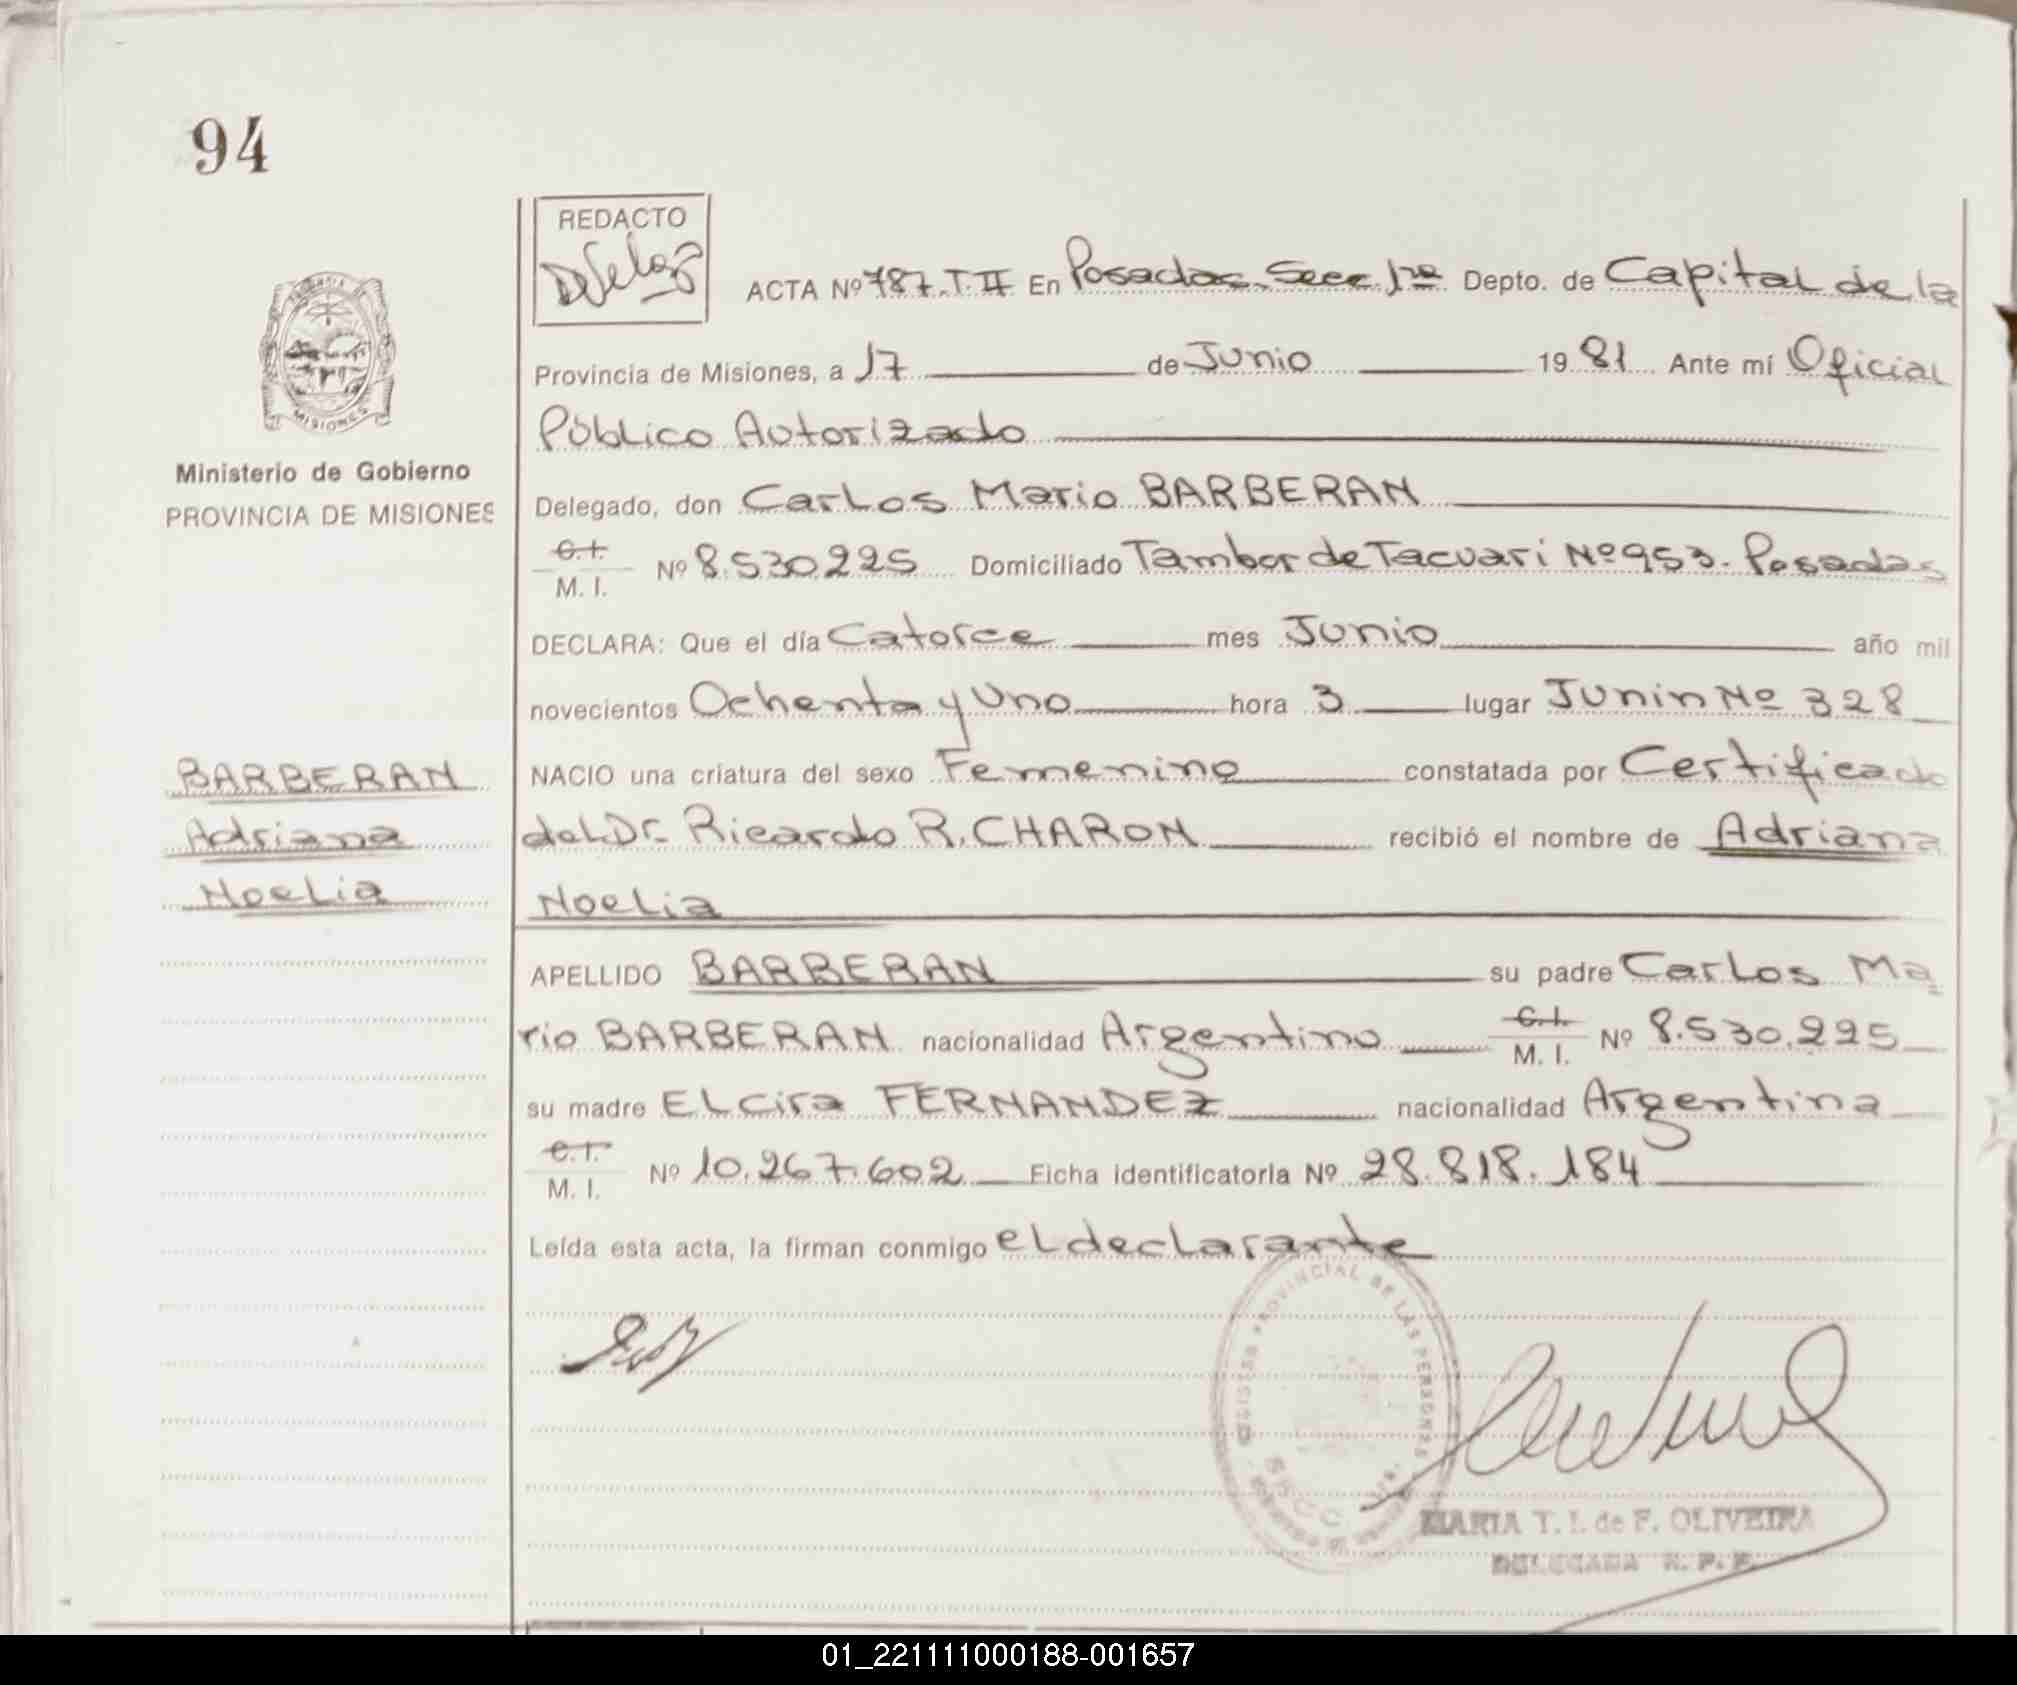 94
REDACTO
ACTA Nº 787.T.II En Posadas. Secc. 1ra Depto. de Capital de la
Provincia de Misiones, a 17 de Junio 1981 Ante mí Oficial
Público Autorizado
MISIONES
Ministerio de Gobierno
PROVINCIA DE MISIONES
Delegado, don Carlos Mario BARBERAN
C.I. M. I. Nº 8.530.225 Domiciliado Tambor de Tacuari Nº 953. Posadas
DECLARA: Que el día Catorce mes Junio año mil
novecientos Ochenta y Uno hora 3 lugar Junin Nº 328
NACIO una criatura del sexo Femenino constatada por Certificado
del Dr. Ricardo R. CHARON recibió el nombre de Adriana
Noelia
BARBERAN
Adriana
Noelia
APELLIDO BARBERAN su padre Carlos Ma
rio BARBERAN nacionalidad Argentino C.I. M. I. Nº 8.530.225
su madre ELcira FERNANDEZ nacionalidad Argentina
C.I. M. I. Nº 10.267.602 Ficha identificatoria Nº 28.818.184
Leída esta acta, la firman conmigo el declarante
PROVINCIAL DE LAS PERSONAS
MARIA T. I. de F. OLIVEIRA
DELEGADA R. P. P.
01_221111000188-001657